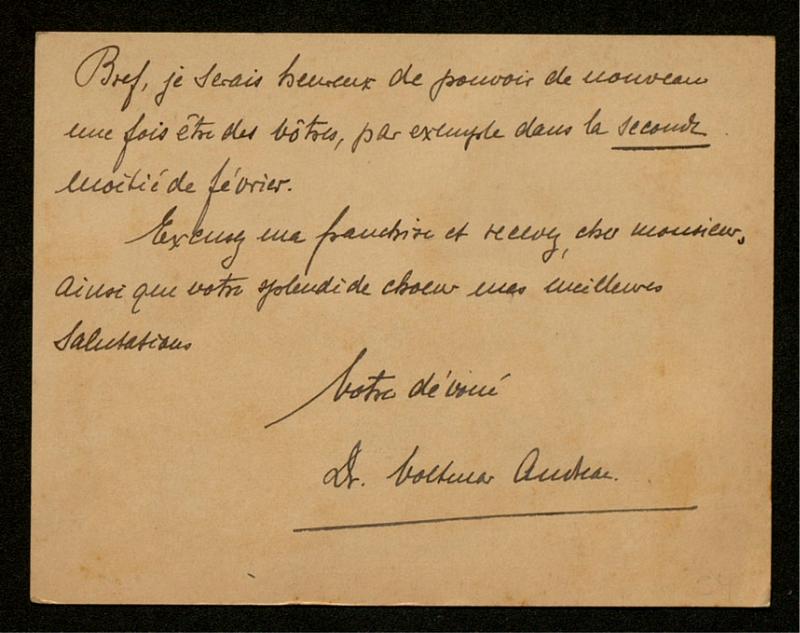 Bref, je serais heureux de pouvoir de nouveau
une fois être des vôtres, par exemple dans la seconde
moitié de février.
Excusez ma franchise et recevez, cher monsieur,
ainsi que votre splendide choeur mes meilleures
salutations
Votre dévoué
Dr. Volkmar Andreae.